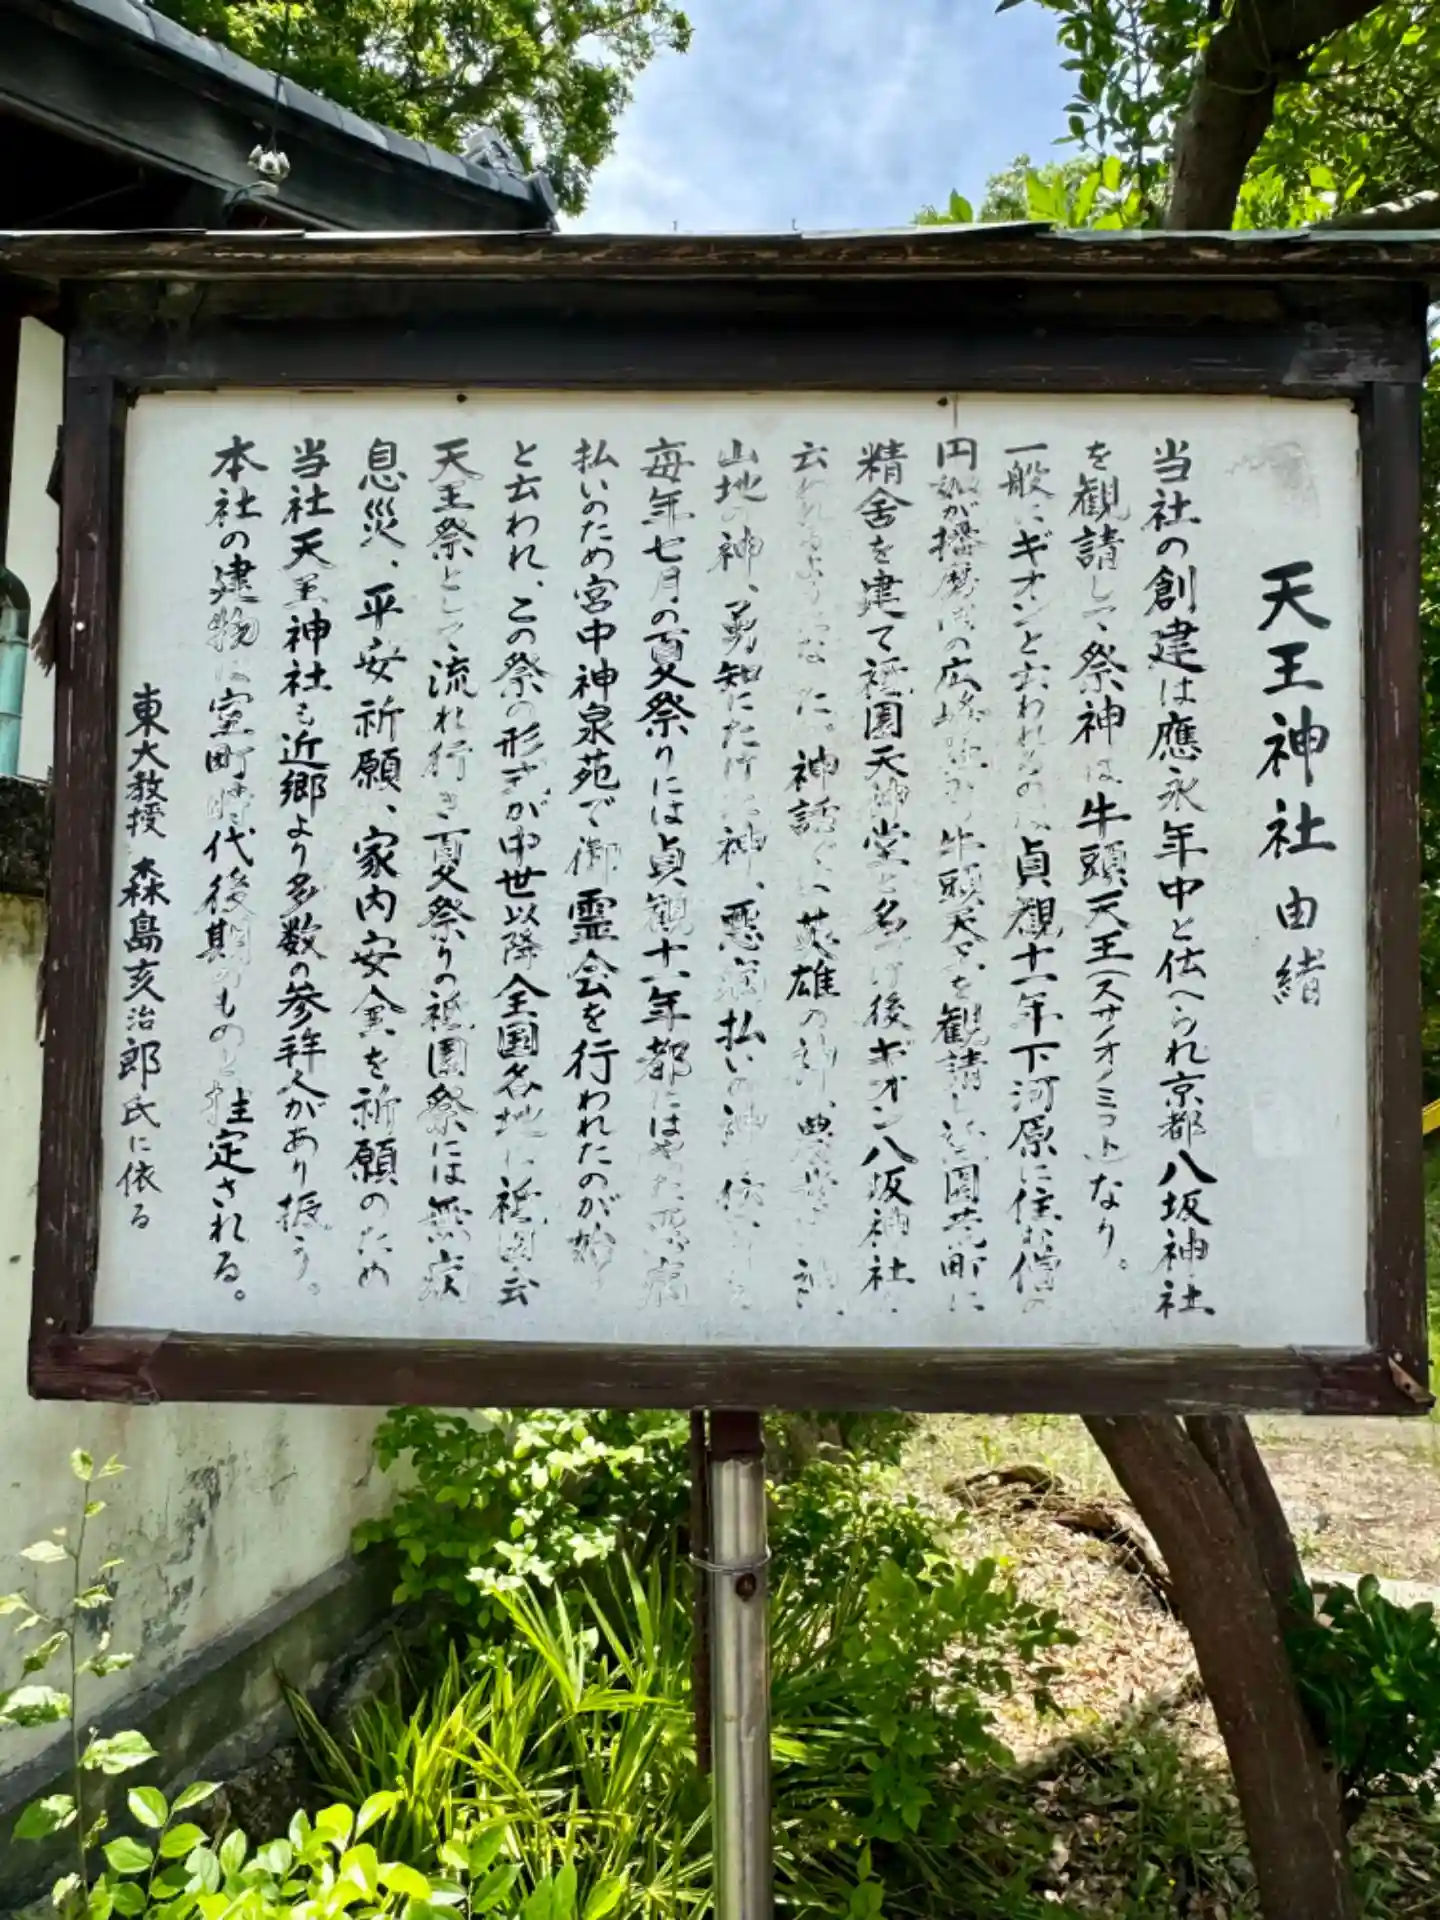 天王神社 由緒
当社の創建は應永年中と伝へられ京都八坂神社
を観請して、祭神は牛頭天王(スサノオノミコト)なり。
一般にギオンと云われるのは貞観十一年下河原に住む僧の
円 が播磨 の広峰 牛頭天王を観請し祇園荒町に
精舎を建て祇園天神堂と名づけ後ギオン八坂神社
云われるようになった。神話で、英雄の神、
山地の神、勇知にたけた神、悪 払いの神
毎年七月の夏祭りには貞観十一年都にはやった悪病
払いのため宮中神泉苑で御霊会を行われたのが始り
と云われ、この祭の形式が中世以降全国各地に祇園会
天王祭として流れ行き夏祭りの祇園祭には無病
息災、平安祈願、家内安全を祈願のため
当社天王神社も近郷より多数の参拝人があり振う。
本社の建物は室町時代後期のものと 定される。
東大教授 森島亥治郎氏に依る